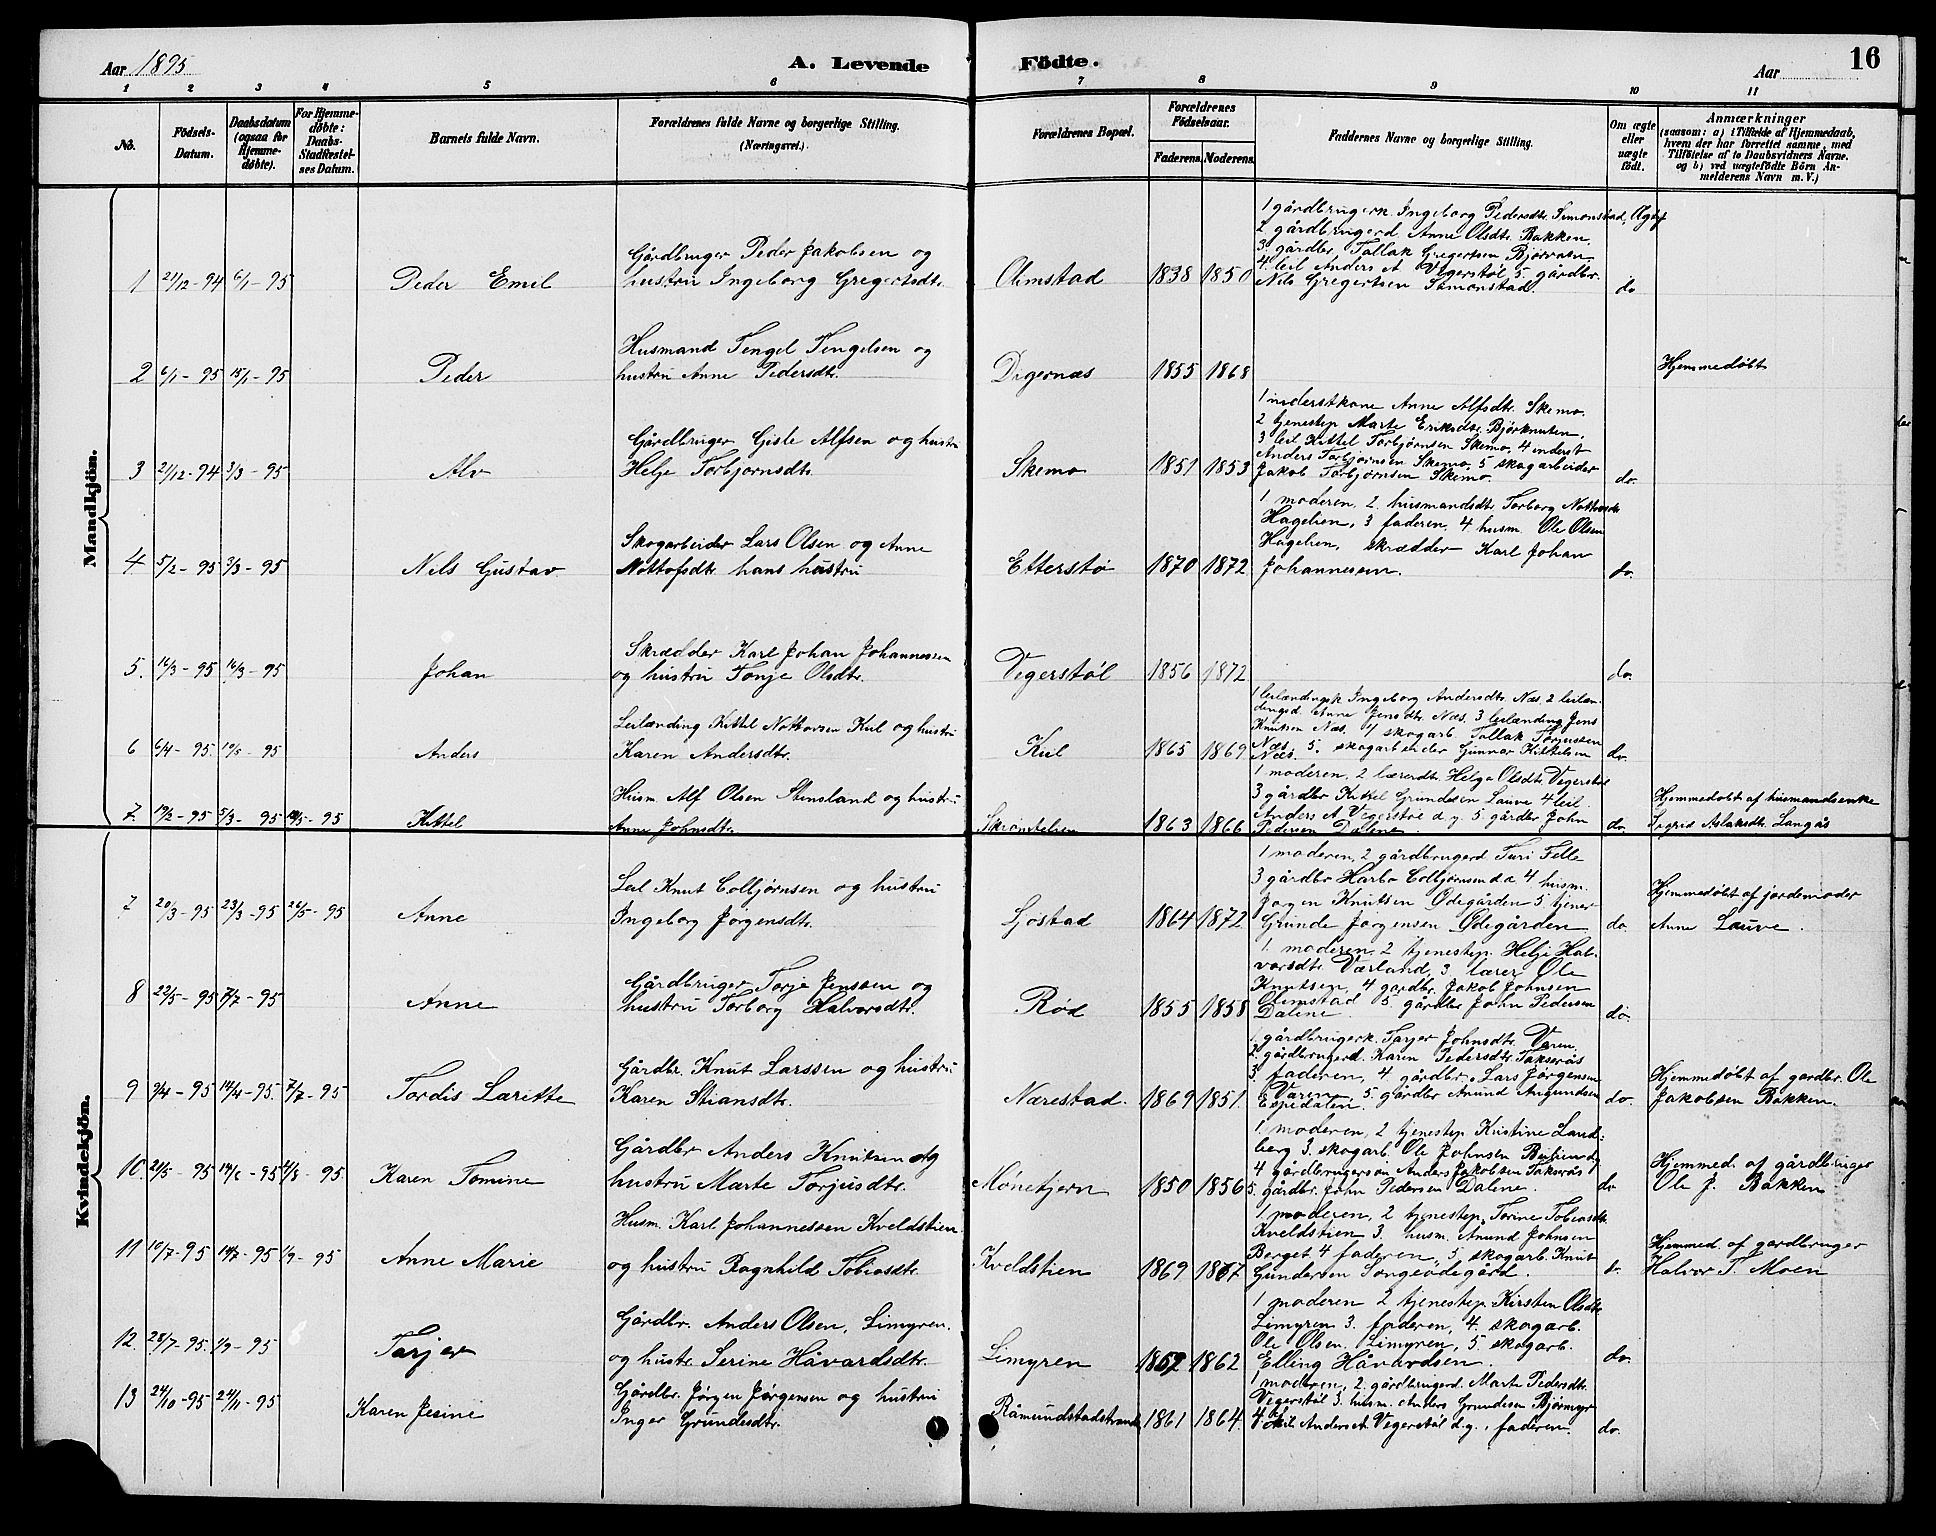 Aar 1895
A. Levende Födte.
Aar
16
1 2 3 4 5 6 7 8 9 10 11
No.
Födsels-Datum.
Daabsdatum (ogsaa for Hjemme-døbte).
For Hjemme-døbte: Daabs-Stadfæstel-ses Datum.
Barnets fulde Navn.
Forældrenes fulde Navne og borgerlige Stilling. (Næringsvei.)
Forældrenes Bopæl.
Forældrenes Födselsaar.
Faderens. Moderens.
Faddernes Navne og borgerlige Stilling.
Om ægte eller uægte født.
Anmærkninger
(saasom: a) i Tilfælde af Hjemmedaab, hvem der har forrettet samme, med Tilföielse af to Daabsvidners Navne. og b) ved uægtefödte Börn An-melderens Navn m. V.)
Mandkjön.
1 21/12-94 6/1-95 Peder Emil
Gårdbruger Peder Jakobsen og
hustru Ingeborg Gregertsdtr.
Olimstad 1838 1850
1 gårdbrugerk. Ingeborg Pedersdtr. Simonstad, Ægtef
2 gårdbrugerd Anne Olsdtr. Bakken,
3. gårdbr. Tallak Gregertsen Bjørvasn
4. leil Anders A Vegerstøl 5. gårdbr.
Nils Gregertsen Simonstad. do
2 6/1-95 15/1-95 Peder
Husmand Tengel Tengelsen og
hustru Anne Pedersdtr.
Digernæs 1855 1868
Hjemmedøbt
3 21/12-94 3/3-95 Alv
Gårdbruger Gisle Alfsen og hustru
Helje Torbjornsdtr.
Skemo 1851 1853
1 inderstkone Anne Alfsdtr. Skemo.
2 tjenestep Marte Eriksdtr. Bjørknuten,
3 leil Kittel Torbjørnsen Skemo, 4 inderst
Anders Torbjørnsen Skemo, 5 skogarbeider
Jakob Torbjørnsen Skemo. do.
4 5/2-95 3/3-95 Nils Gustav
Skogarbeider Lars Olsen og Anne
Nottofsdtr. hans hustru
Etterstø 1870 1872
1 moderen, 2. husmandsdtr Torborg
Hagelien, 3 faderen, 4 husm Ole Olsen
Hagelien, skrædder Karl Johan
Johannessen. do.
5. 16/3-95 16/3-95 Johan
Skrædder Karl Johan Johannessen
og hustru Tonje Olsdtr.
Vegerstøl 1856 1872 do.
6 6/4-95. -95 Anders
Leilænding Kittel Nottovsen Kil og hustru
Karen Andersdtr.
Kil 1865 1869
1 leilændingsk Ingeborg Andersdtr. Næs. 2 leilæn-
dingsd. Anne Jensdtr. Næs. 3 leilænding Jens
Knutsen Næs. 4 skogarb. Tallak Torjussen
Næs. 5. skogarbeider Gunnar Kittelsen
Næs. do.
7. 19/2-95 5/3-95 -95 Kittel
Husm. Alf Olsen Stensland og hustru
Anne Johnsdtr.
1863 1866
1 moderen, 2 lærerdtr. Helga Olsdtr. Vegerstøl
3 gårdbr Kittel Grundesen Lauve 4 leil.
Anders A Vegerstøl d.y. 5. gårdbr John
Pedersen Dalene. do.
Hjemmedøbt af husmandsenke
Sigrid Aslaksdtr. Langås
Kvindekjön.
7. 20/3-95 23/3-95 26/5-95 Anne
Leil Knut Colbjørnsen og hustru
Ingeborg Jørgensdtr.
Ljøstad 1864 1872
1 moderen, 2 gårdbrugerd Turi Felle
3 gårdbr Harbo Colbjørnsen d.a 4 husm.
Jorgen Knutsen Ødegården 5. tjener
Grunde Jørgensen Ødegården do.
Hjemmedøbt af jordemoder
Anne Lauve.
8 22/5-95 7/7-95 Anne
Gårdbruger Torje Jenssen og
hustru Torborg Halvorsdtr.
Rød 1855 1858
1. moderen, 2 tjenestep. Helje Hal-
vorsdtr. Værland, 3 lærer Ole
Knutsen, 4 gardbr. Jakob Johnsen
Olimstad 5 gårdbr John Pedersen
Dalene. do.
9 3/4-95 14/4-95. 7/7-95 Tordis Larette
Gårdbr. Knut Larssen og hustru
Karen Stiansdtr.
Nærestad. 1869 1851.
1 gårdbrugerk. Tarjer Johnsdtr. Varen
2. gårdbrugerd. Karen Pedersdtr. Takserås
3. faderen, 4 gårdbr. Lars Jørgensen
Varen. 5. gårdbr Anund Angundsen
Espedalen. do.
Hjemmedøbt af gardbr. Ole
Jakobsen Bakken.
10. 21/5-95 14/6-95 4/8-95. Karen Tomine
Gårdbr Anders Knutsen og
hustru Marte Torjusdtr.
Monetjern 1850 1856
1. moderen, 2 tjenestep Kristine Land-
berg 3. skogarb. Ole Johnsen
4 gårdbrugersøn Anders Jakobsen Takserås
5. gårdbr. John Pedersen Dalene. do
Hjemmed. af gårdbruger
Ole J. Bakken
11 10/7-95 14/7-95 1/9-95 Anne Marie
Husm. Karl Johannessen Kveldstien
og hustru Ragnhild Tobiasdtr.
Kveldstien 1869 1867
1. moderen, 2 tjenestep. Torine Tobiasdtr.
Kveldstien 3. husm. Anund Johnsen
Berget 4 faderen, 5 skogarb. Knut
Gundersen Songeødegård. do
Hjemmed. af gardbruger
Halvor T. Moen
12. 28/7-95. 1/9-95 Tarjer
Gårdbr. Anders Olsen, Limyren.
og hustr. Serine Håvardsdtr.
Limyren 1862
1 moderen 2 tjenestep. Kirsten Olsdtr.
Limyren 3. faderen, 4. skogarb.
Ole Olsen, Limyren, 5. skogarb.
Elling Håvardsen. do.
13 24/10-95 24/11-95 Karen Jesine
Gårdbr. Jørgen Jørgensen og hustru
Inger Grundesdtr.
Råmundstadstrand 1861 1864.
1 moderen, 2. gårdbrugerd. Marte Pedersdtr.
Vegerstøl 3. husm. Anders Grundesen Bjørmyr
4 leil Anders A. Vegerstøl d.y., faderen. do.